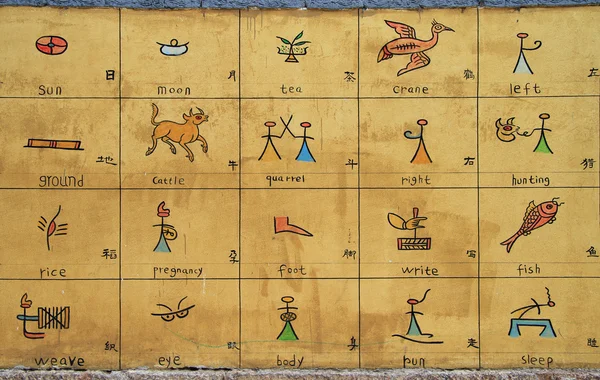 日
sun
月
moon
茶
tea
鹤
crane
左
left
地
ground
牛
cattle
斗
quarrel
右
right
猎
hunting
稻
rice
孕
pregnancy
脚
foot
写
write
鱼
fish
織
weave
eye
身
body
走
run
睡
sleep